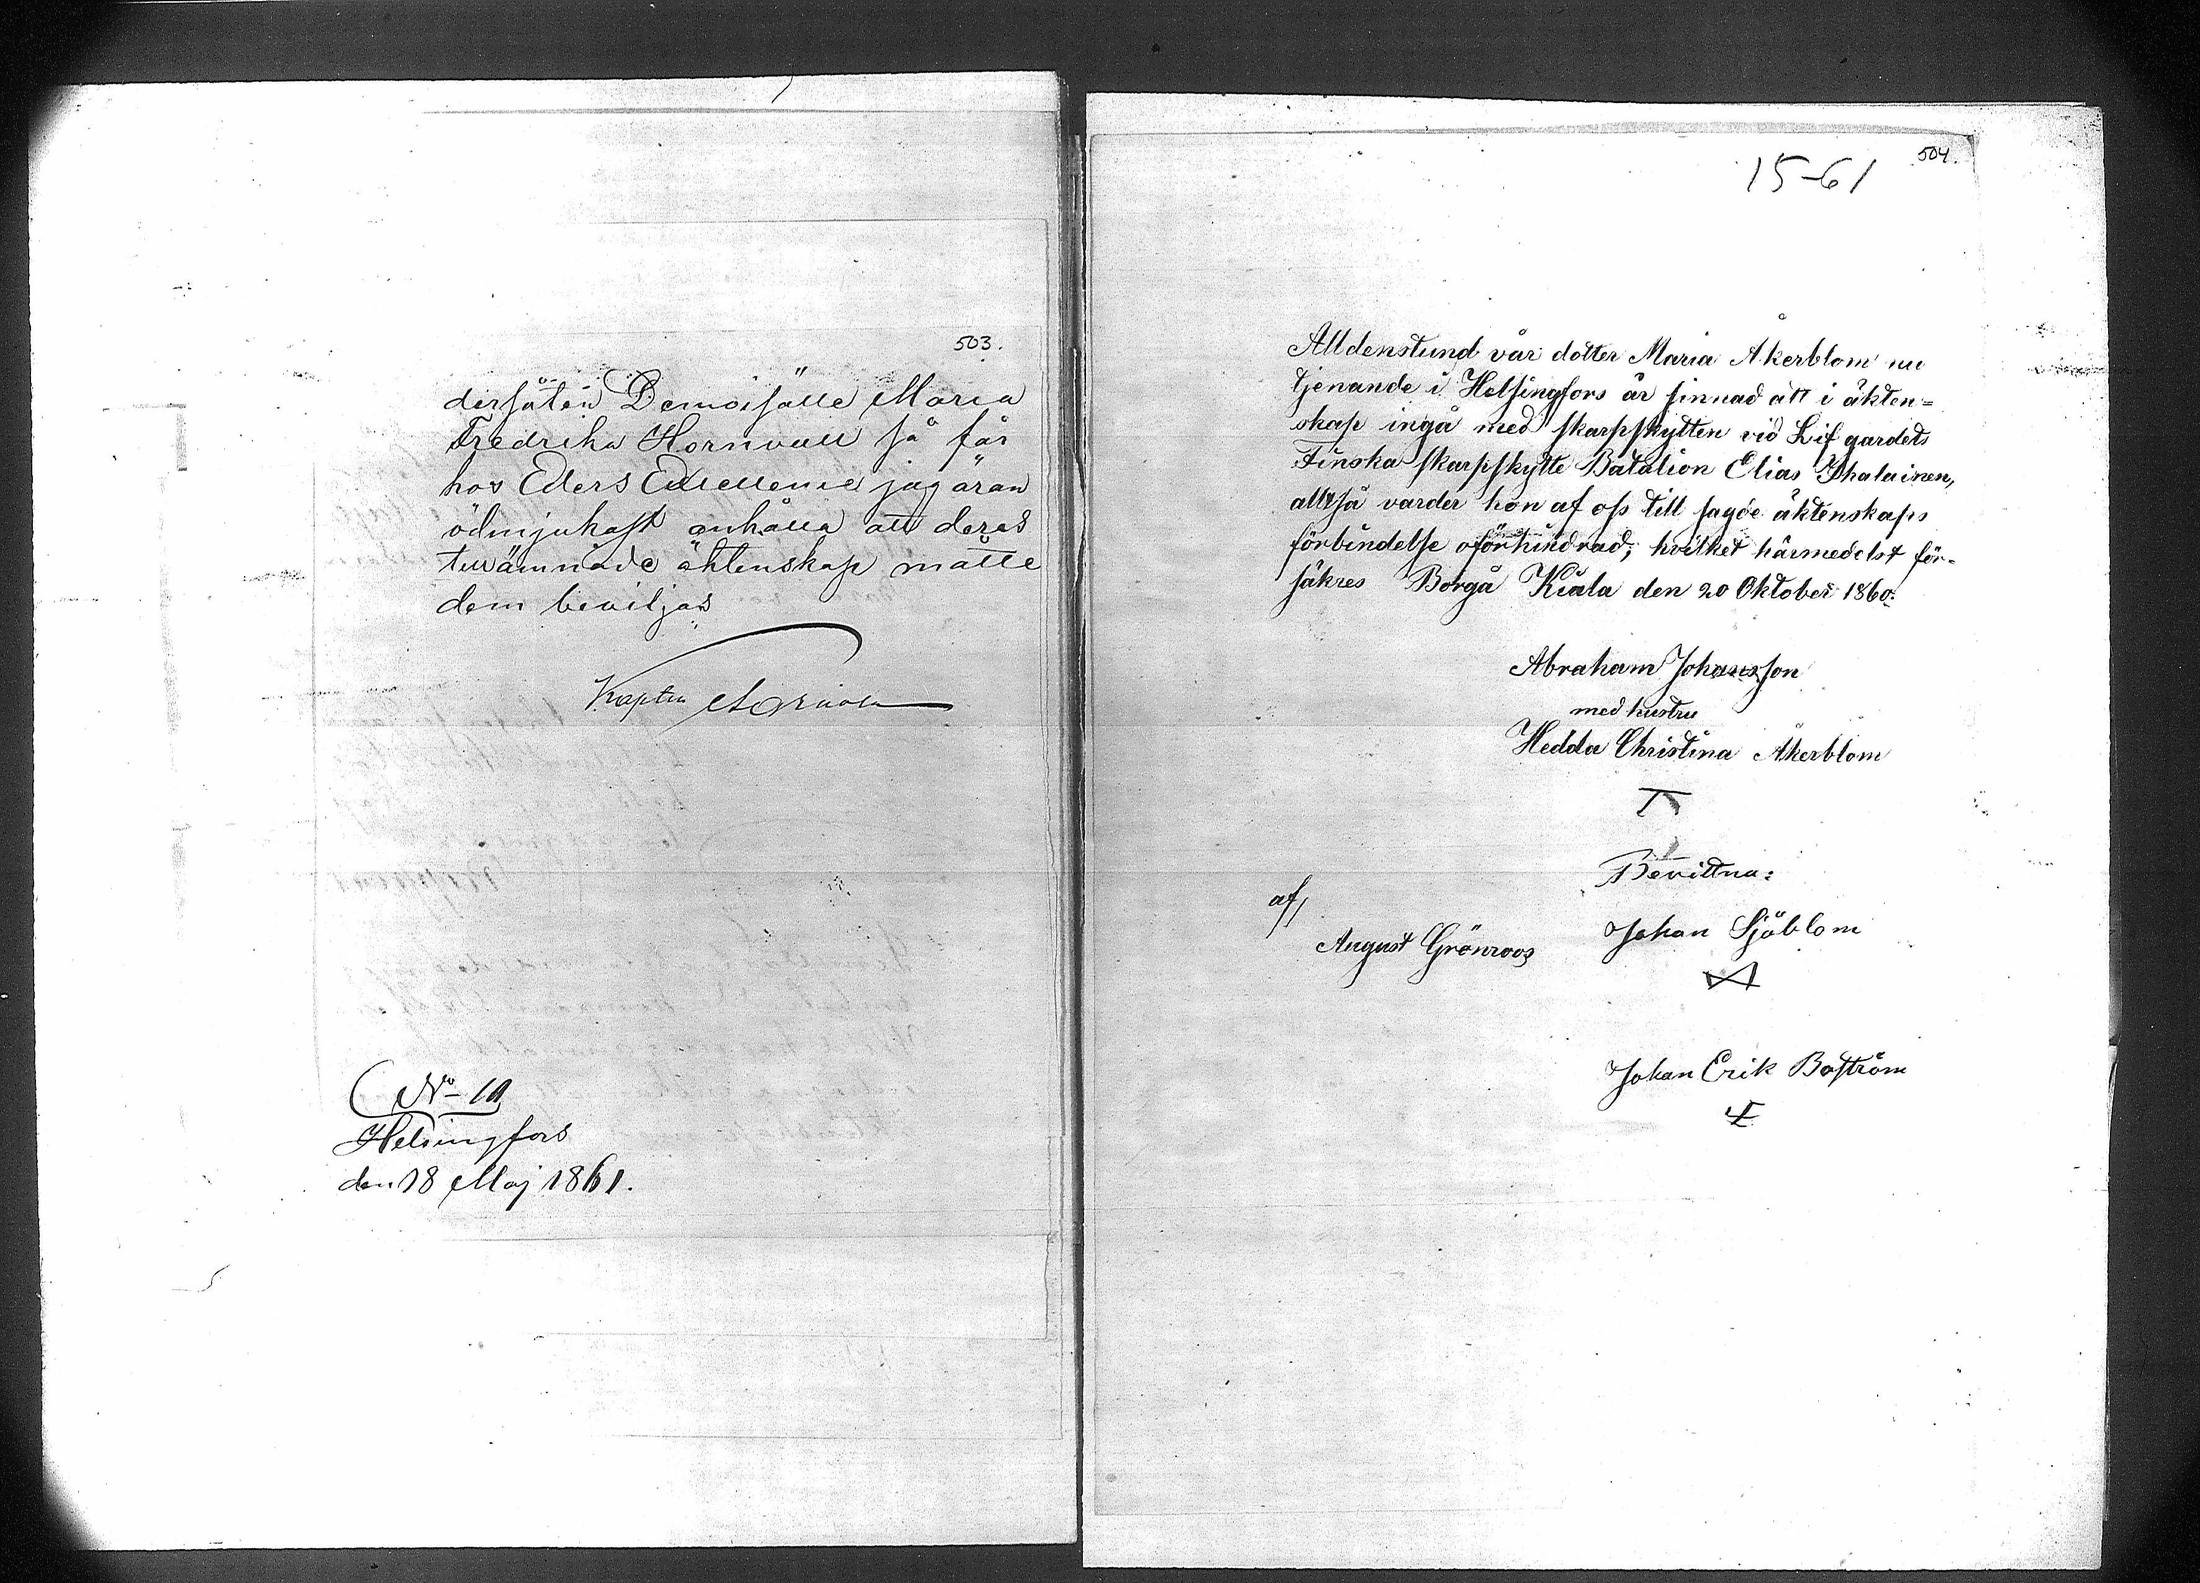 503.
dersåten Demoiselle Maria
Fredrika Hornvall så får
hos Eders Excellence jag äran
ödmjukast anhålla att deras
tillämnade äktenskap måtte
dem beviljas
Kapten
No 10
Helsingfors
den 18 Maj 1861.
504.
15-61
Alldenstund vår dotter Maria Åkerblom nu
tjenande i Helsingfors är sinnad att i äkten=
skap ingå med skarpskytten vid Lif gardets
Finska skarpskytte Batalion Elias Ihalainen,
alltså varder hon af oss till sagde äktenskaps
förbindelse oförhindrad; hvilket härmedelst för-
säkres Borgå Kiala den 20 Oktober 1860.
Abraham Johansson
med hustru
Hedda Christina Åkerblom
Bevittna:
af,
August Grönroos
Johan Sjöblom
Johan Erik Boström